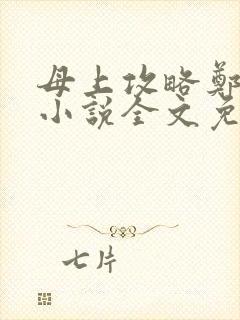 母上攻略鄭
小說全文免
七片